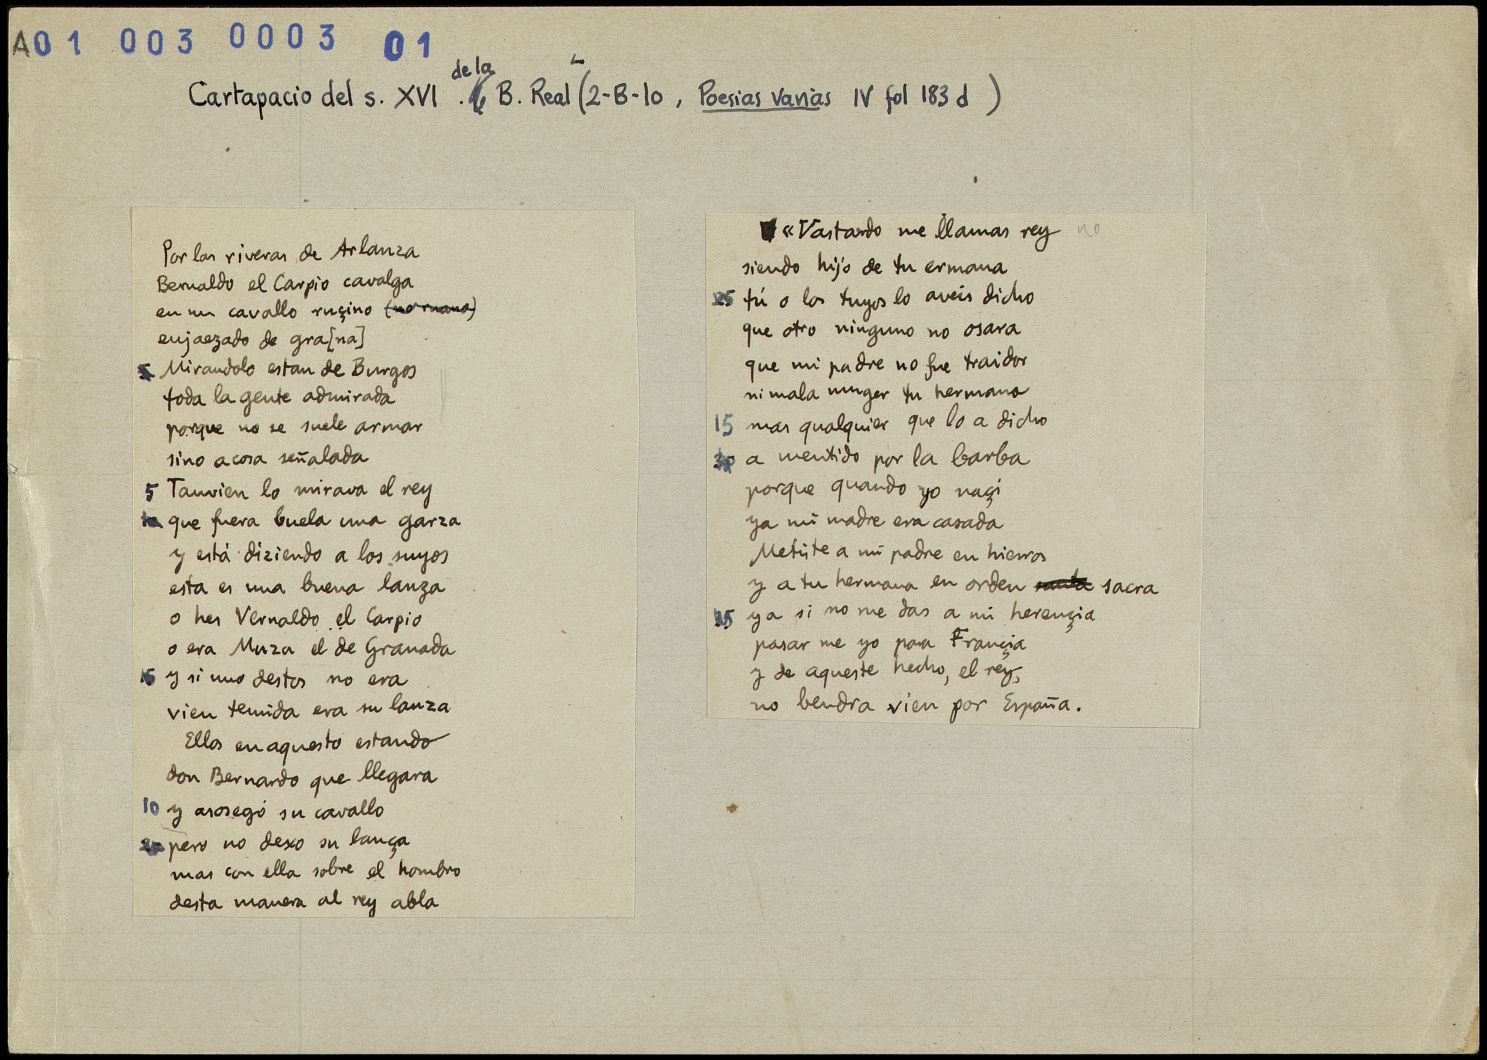 A01 003 0003 01
Cartapacio del s. XVI . de la B. Real (2-B-10, Poesias varias IV fol 183 d)
Por las riveras de Arlanza
Bernaldo el Carpio cavalga
en un cavallo ruçino
enjaezado de gra[na]
Mirandolo estan de Burgos
toda la gente admirada
porque no se suele armar
sino a cosa señalada
5 Tanvien lo mirava el rey
que fuera buela una garza
y está diziendo a los suyos
esta es una buena lanza
o hes Vernaldo el Carpio
o era Muza el de Granada
y si uno destos no era
vien temida era su lanza
Ellos en aquesto estando
don Bernardo que llegara
10 y asosegó su cavallo
pero no dexo su lança
mas con ella sobre el hombro
desta manera al rey abla
«Vastardo me llamas rey no
siendo hijo de tu ermana
tú o los tuyos lo aveis dicho
que otro ninguno no osara
que mi padre no fue traidor
ni mala muger tu hermana
15 mas qualquier que lo a dicho
a mentido por la barba
porque quando yo naçi
ya mi madre era casada
Metiste a mi padre en hierros
y a tu hermana en orden sacra
ya si no me das a mi herençia
pasar me yo para Françia
y de aqueste hecho, el rey,
no bendra vien por España.